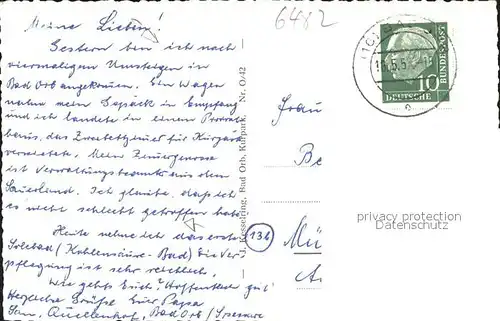 6482
Meine Lieben!
Gestern bin ich nach
viermaligem Umsteigen in
Bad Orb angekommen. Ein Wagen
nahm mein Gepäck in Empfang
und ich landete in einem Privat
haus, das Zweibettzimmer für Kurgäste
vermietet. Mein Zimmergenosse
ist Verwaltungsbeamter aus dem
Sauerland. Ich glaube, daß ich
es nicht schlecht getroffen habe
Heute nehme ich das erste
Solebad (Kohlensäure-Bad) Die Ver
pflegung ist sehr reichlich.
Wie geht's Euch? Hoffentlich gut!
Herzliche Grüße Euer Papa
San. Quellenhof, Bad Orb / Spessart
J. Kesselring, Bad Orb, Kurpark Nr. O/42
10
DEUTSCHE
BUNDESPOST
Frau
Be
13b
Mü
privacy protection
Datenschutz